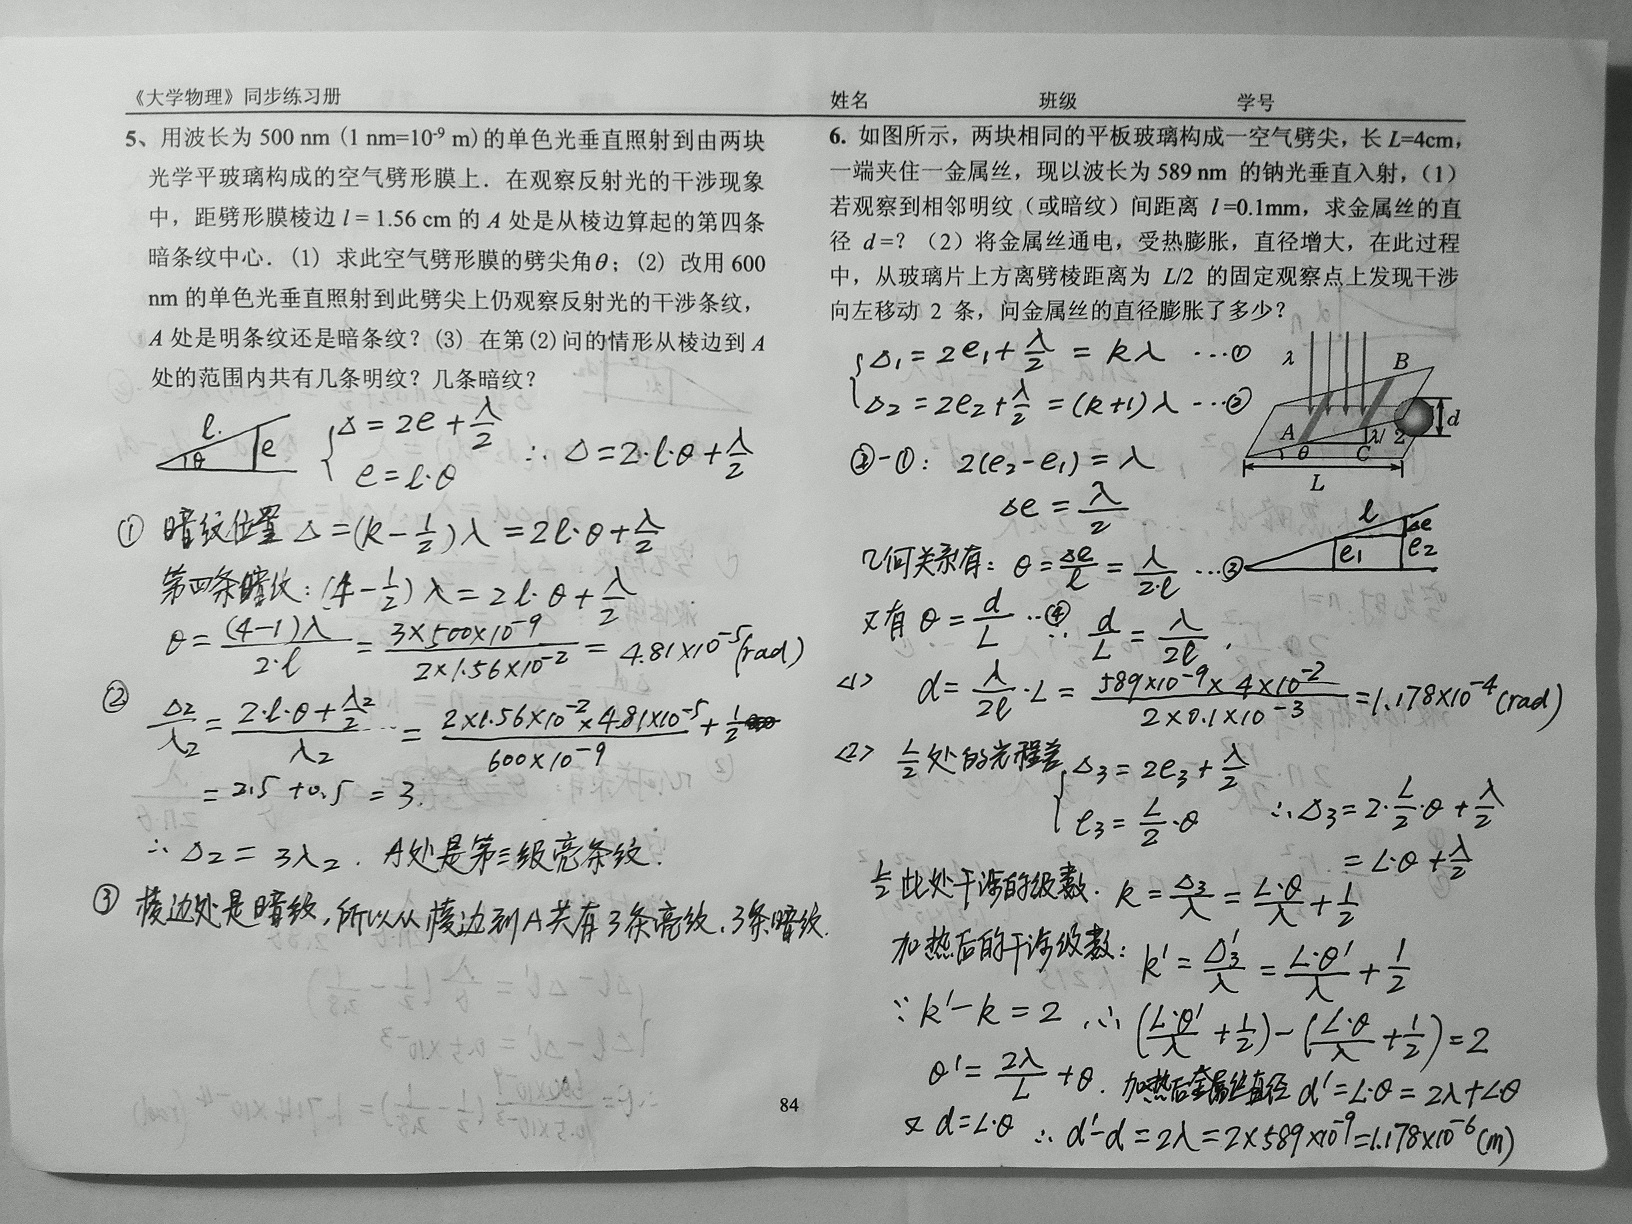 《大学物理》同步练习册
姓名 班级 学号
5、用波长为 500 nm (1 nm=10⁻⁹ m)的单色光垂直照射到由两块
光学平玻璃构成的空气劈形膜上．在观察反射光的干涉现象
中，距劈形膜棱边 l = 1.56 cm 的 A 处是从棱边算起的第四条
暗条纹中心．(1) 求此空气劈形膜的劈尖角θ；(2) 改用 600
nm 的单色光垂直照射到此劈尖上仍观察反射光的干涉条纹，
A 处是明条纹还是暗条纹？(3) 在第(2)问的情形从棱边到 A
处的范围内共有几条明纹？几条暗纹？
l. θ e
Δ = 2e + λ/2
e = l·θ
∴ Δ = 2·l·θ + λ/2
① 暗纹位置 Δ = (k − 1/2)λ = 2l·θ + λ/2
第四条暗纹: (4 − 1/2)λ = 2l·θ + λ/2
θ = (4−1)λ / 2·l = 3×500×10⁻⁹ / 2×1.56×10⁻² = 4.81×10⁻⁵(rad)
② Δ₂/λ₂ = (2·l·θ + λ₂/2) / λ₂ = 2×1.56×10⁻²×4.81×10⁻⁵ / 600×10⁻⁹ + 1/2
= 2.5 + 0.5 = 3.
∴ Δ₂ = 3λ₂. A处是第三级亮条纹.
③ 棱边处是暗纹, 所以从棱边到A共有3条亮纹, 3条暗纹.
6. 如图所示，两块相同的平板玻璃构成一空气劈尖，长 L=4cm，
一端夹住一金属丝，现以波长为 589 nm 的钠光垂直入射，(1)
若观察到相邻明纹（或暗纹）间距离 l =0.1mm，求金属丝的直
径 d =？（2）将金属丝通电，受热膨胀，直径增大，在此过程
中，从玻璃片上方离劈棱距离为 L/2 的固定观察点上发现干涉
向左移动 2 条，问金属丝的直径膨胀了多少？
λ B A θ C λ/2 d L
Δ₁ = 2e₁ + λ/2 = kλ ···①
Δ₂ = 2e₂ + λ/2 = (k+1)λ ···②
②−①: 2(e₂−e₁) = λ
Δe = λ/2
l Δe e₁ e₂
几何关系有: θ = Δe/l = λ/2·l ···③
又有 θ = d/L ··④ ∴ d/L = λ/2l .
<1> d = λ/2l · L = 589×10⁻⁹×4×10⁻² / 2×0.1×10⁻³ = 1.178×10⁻⁴(rad)
<2> L/2 处的光程差 Δ₃ = 2e₃ + λ/2
e₃ = L/2 · θ
∴ Δ₃ = 2·L/2·θ + λ/2
= L·θ + λ/2
此处干涉的级数. k = Δ₃/λ = L·θ/λ + 1/2
加热后的干涉级数: k′ = Δ₃′/λ = L·θ′/λ + 1/2
∵ k′−k = 2, ∴ (L·θ′/λ + 1/2) − (L·θ/λ + 1/2) = 2
θ′ = 2λ/L + θ. 加热后金属丝直径 d′ = L·θ = 2λ + L·θ
又 d = L·θ ∴ d′−d = 2λ = 2×589×10⁻⁹ = 1.178×10⁻⁶(m)
84